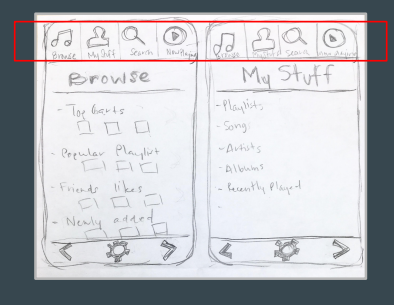 Browse My Stuff Search Now Playing
Browse
- Top Charts
- Popular Playlist
- Friends likes
- Newly added
Browse My Stuff Search Now Playing
My Stuff
- Playlists
- Songs
- Artists
- Albums
- Recently Played
-